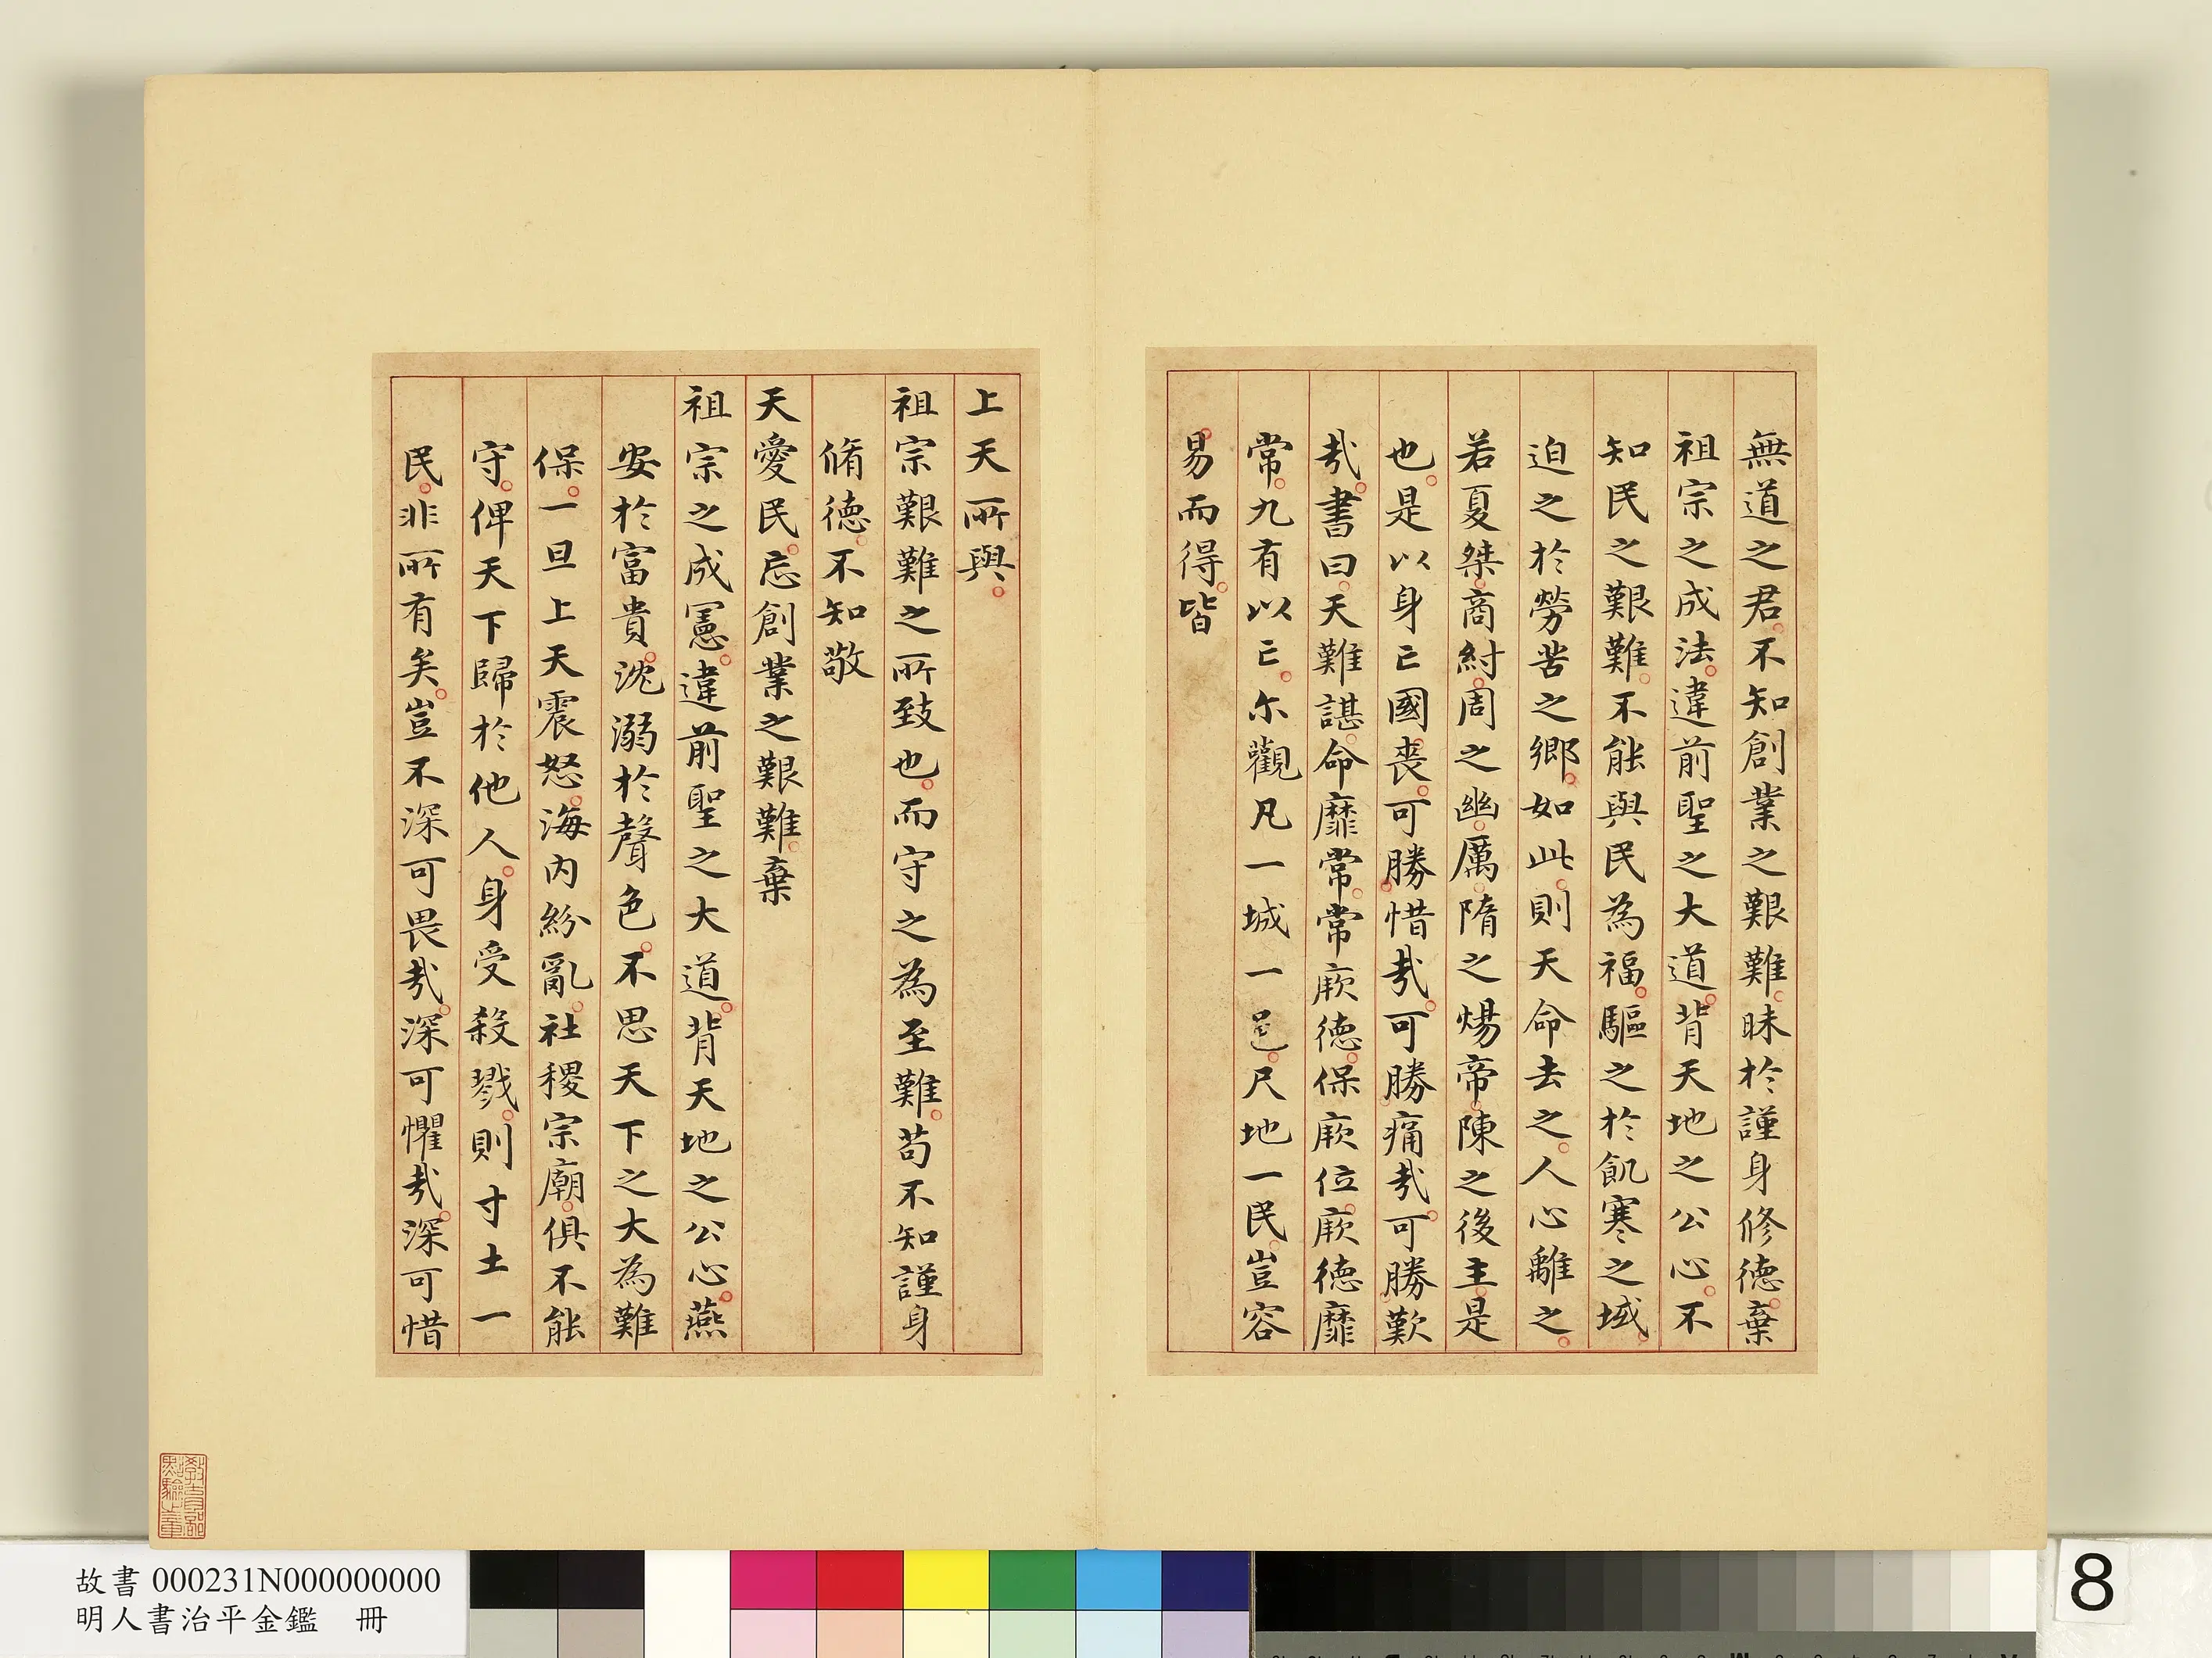 無道之君不知創業之艱難昧於謹身修德棄
祖宗之成法違前聖之大道背天地之公心不
知民之艱難不能與民為福驅之於飢寒之域
迫之於勞苦之鄉如此則天命去之人心離之
若夏桀商紂周之幽厲隋之煬帝陳之後主是
也是以身亡國喪可勝惜㢤可勝痛㢤可勝歎
㢤書曰天難諶命靡常常厥德保厥位厥德靡
常九有以亡尒觀凡一城一邑尺地一民豈容
易而得皆
上天所與
祖宗艱難之所致也而守之為至難苟不知謹身
脩德不知敬
天愛民忘創業之艱難棄
祖宗之成憲違前聖之大道背天地之公心燕
安於富貴沈溺於聲色不思天下之大為難
保一旦上天震怒海內紛亂社稷宗廟俱不能
守俾天下歸於他人身受殺戮則寸土一
民非所有矣豈不深可畏㢤深可懼㢤深可惜
教育部點驗之章
故書 000231N000000000
明人書治平金鑑 冊
8